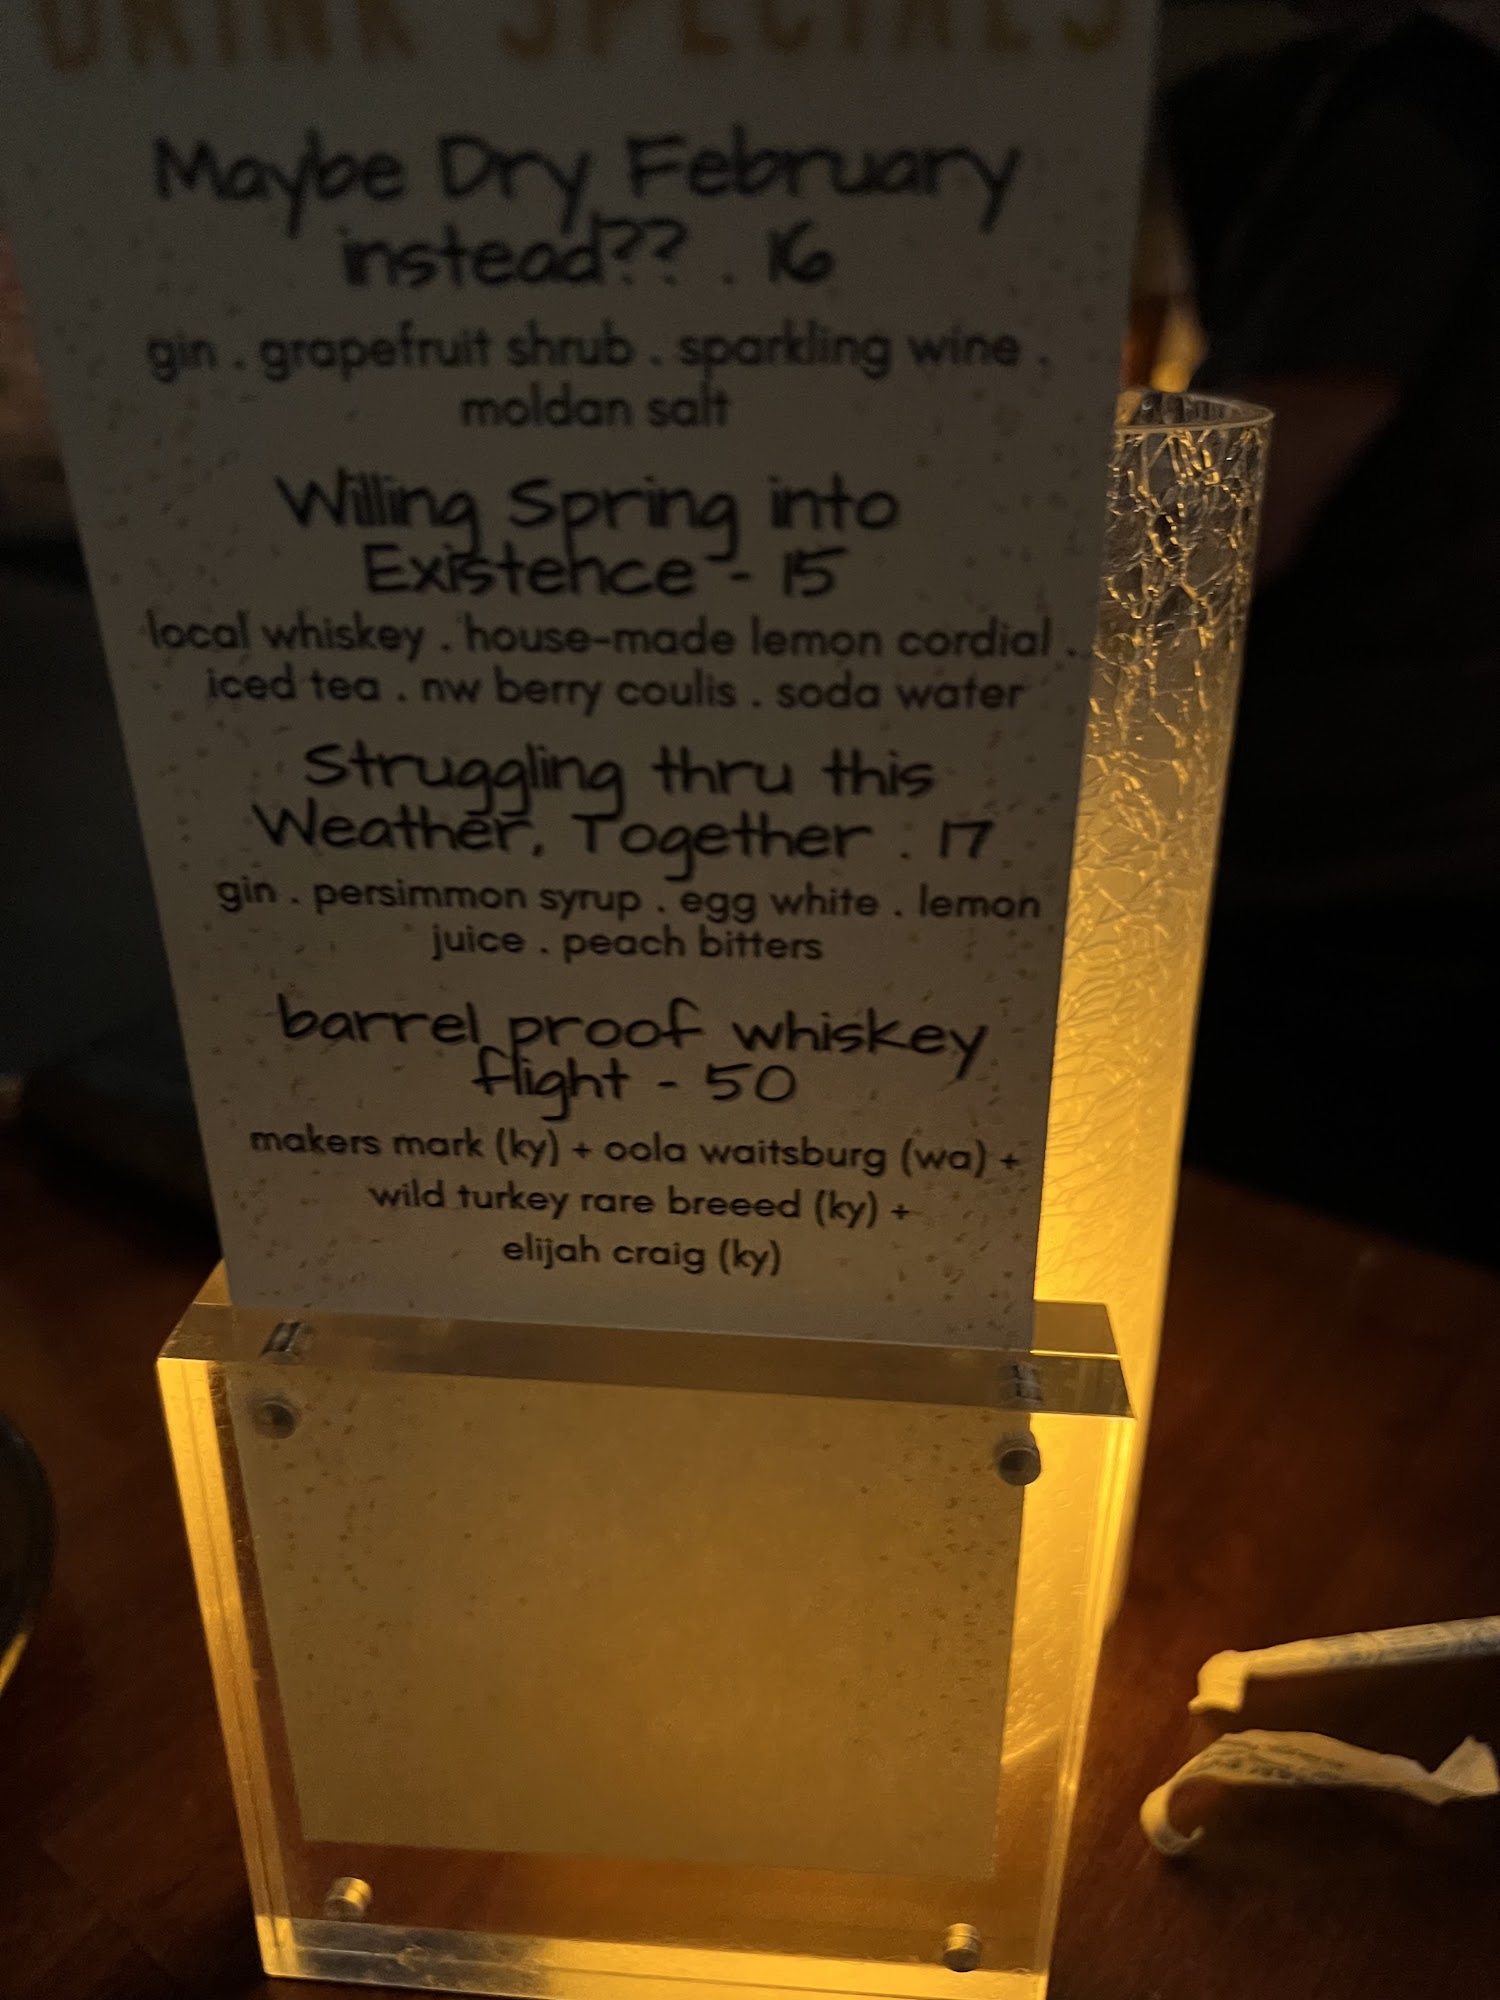 DRINK SPECIALS
Maybe Dry February
instead?? . 16
gin . grapefruit shrub . sparkling wine .
moldan salt
Willing Spring into
Existence - 15
local whiskey . house-made lemon cordial .
iced tea . nw berry coulis . soda water
Struggling thru this
Weather, Together . 17
gin . persimmon syrup . egg white . lemon
juice . peach bitters
barrel proof whiskey
flight - 50
makers mark (ky) + oola waitsburg (wa) +
wild turkey rare breeed (ky) +
elijah craig (ky)